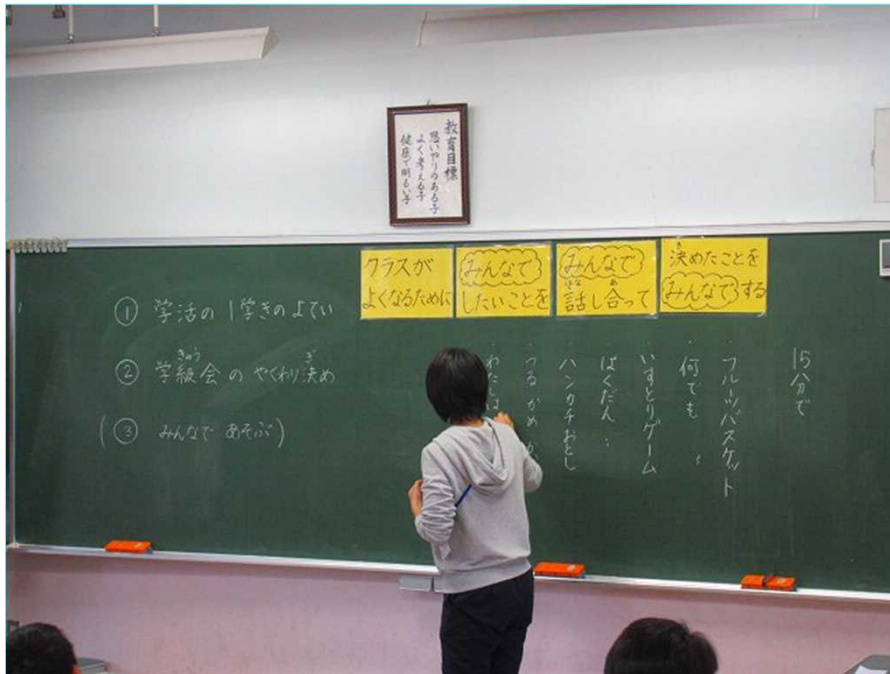 教育目標
思いやりのある子
よく考える子
健康で明るい子
クラスが
よくなるために
みんなで
したいことを
みんなで
話し合って
決めたことを
みんなで する
① 学活の1学きのよてい
② 学級会の やくわり決め
(③ みんなで あそぶ)
15分で
・フルーツバスケット
・何でも 〃
・いすとりゲーム
・ばくだん 〃
・ハンカチおとし
・つるかめ
・わたしは